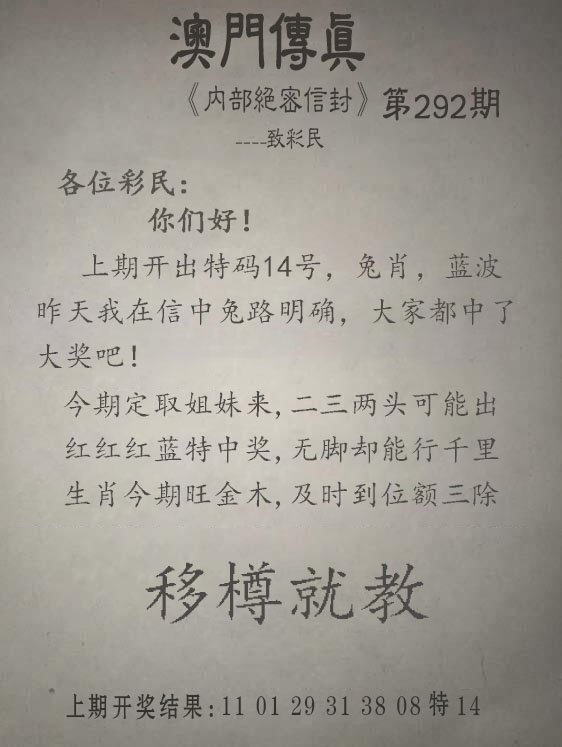 澳門傳真
《内部絕密信封》第292期
----致彩民
各位彩民：
你们好！
上期开出特码14号，兔肖，蓝波
昨天我在信中兔路明确，大家都中了
大奖吧！
今期定取姐妹来,二三两头可能出
红红红蓝特中奖,无脚却能行千里
生肖今期旺金木,及时到位额三除
移樽就教
上期开奖结果:11 01 29 31 38 08 特 14